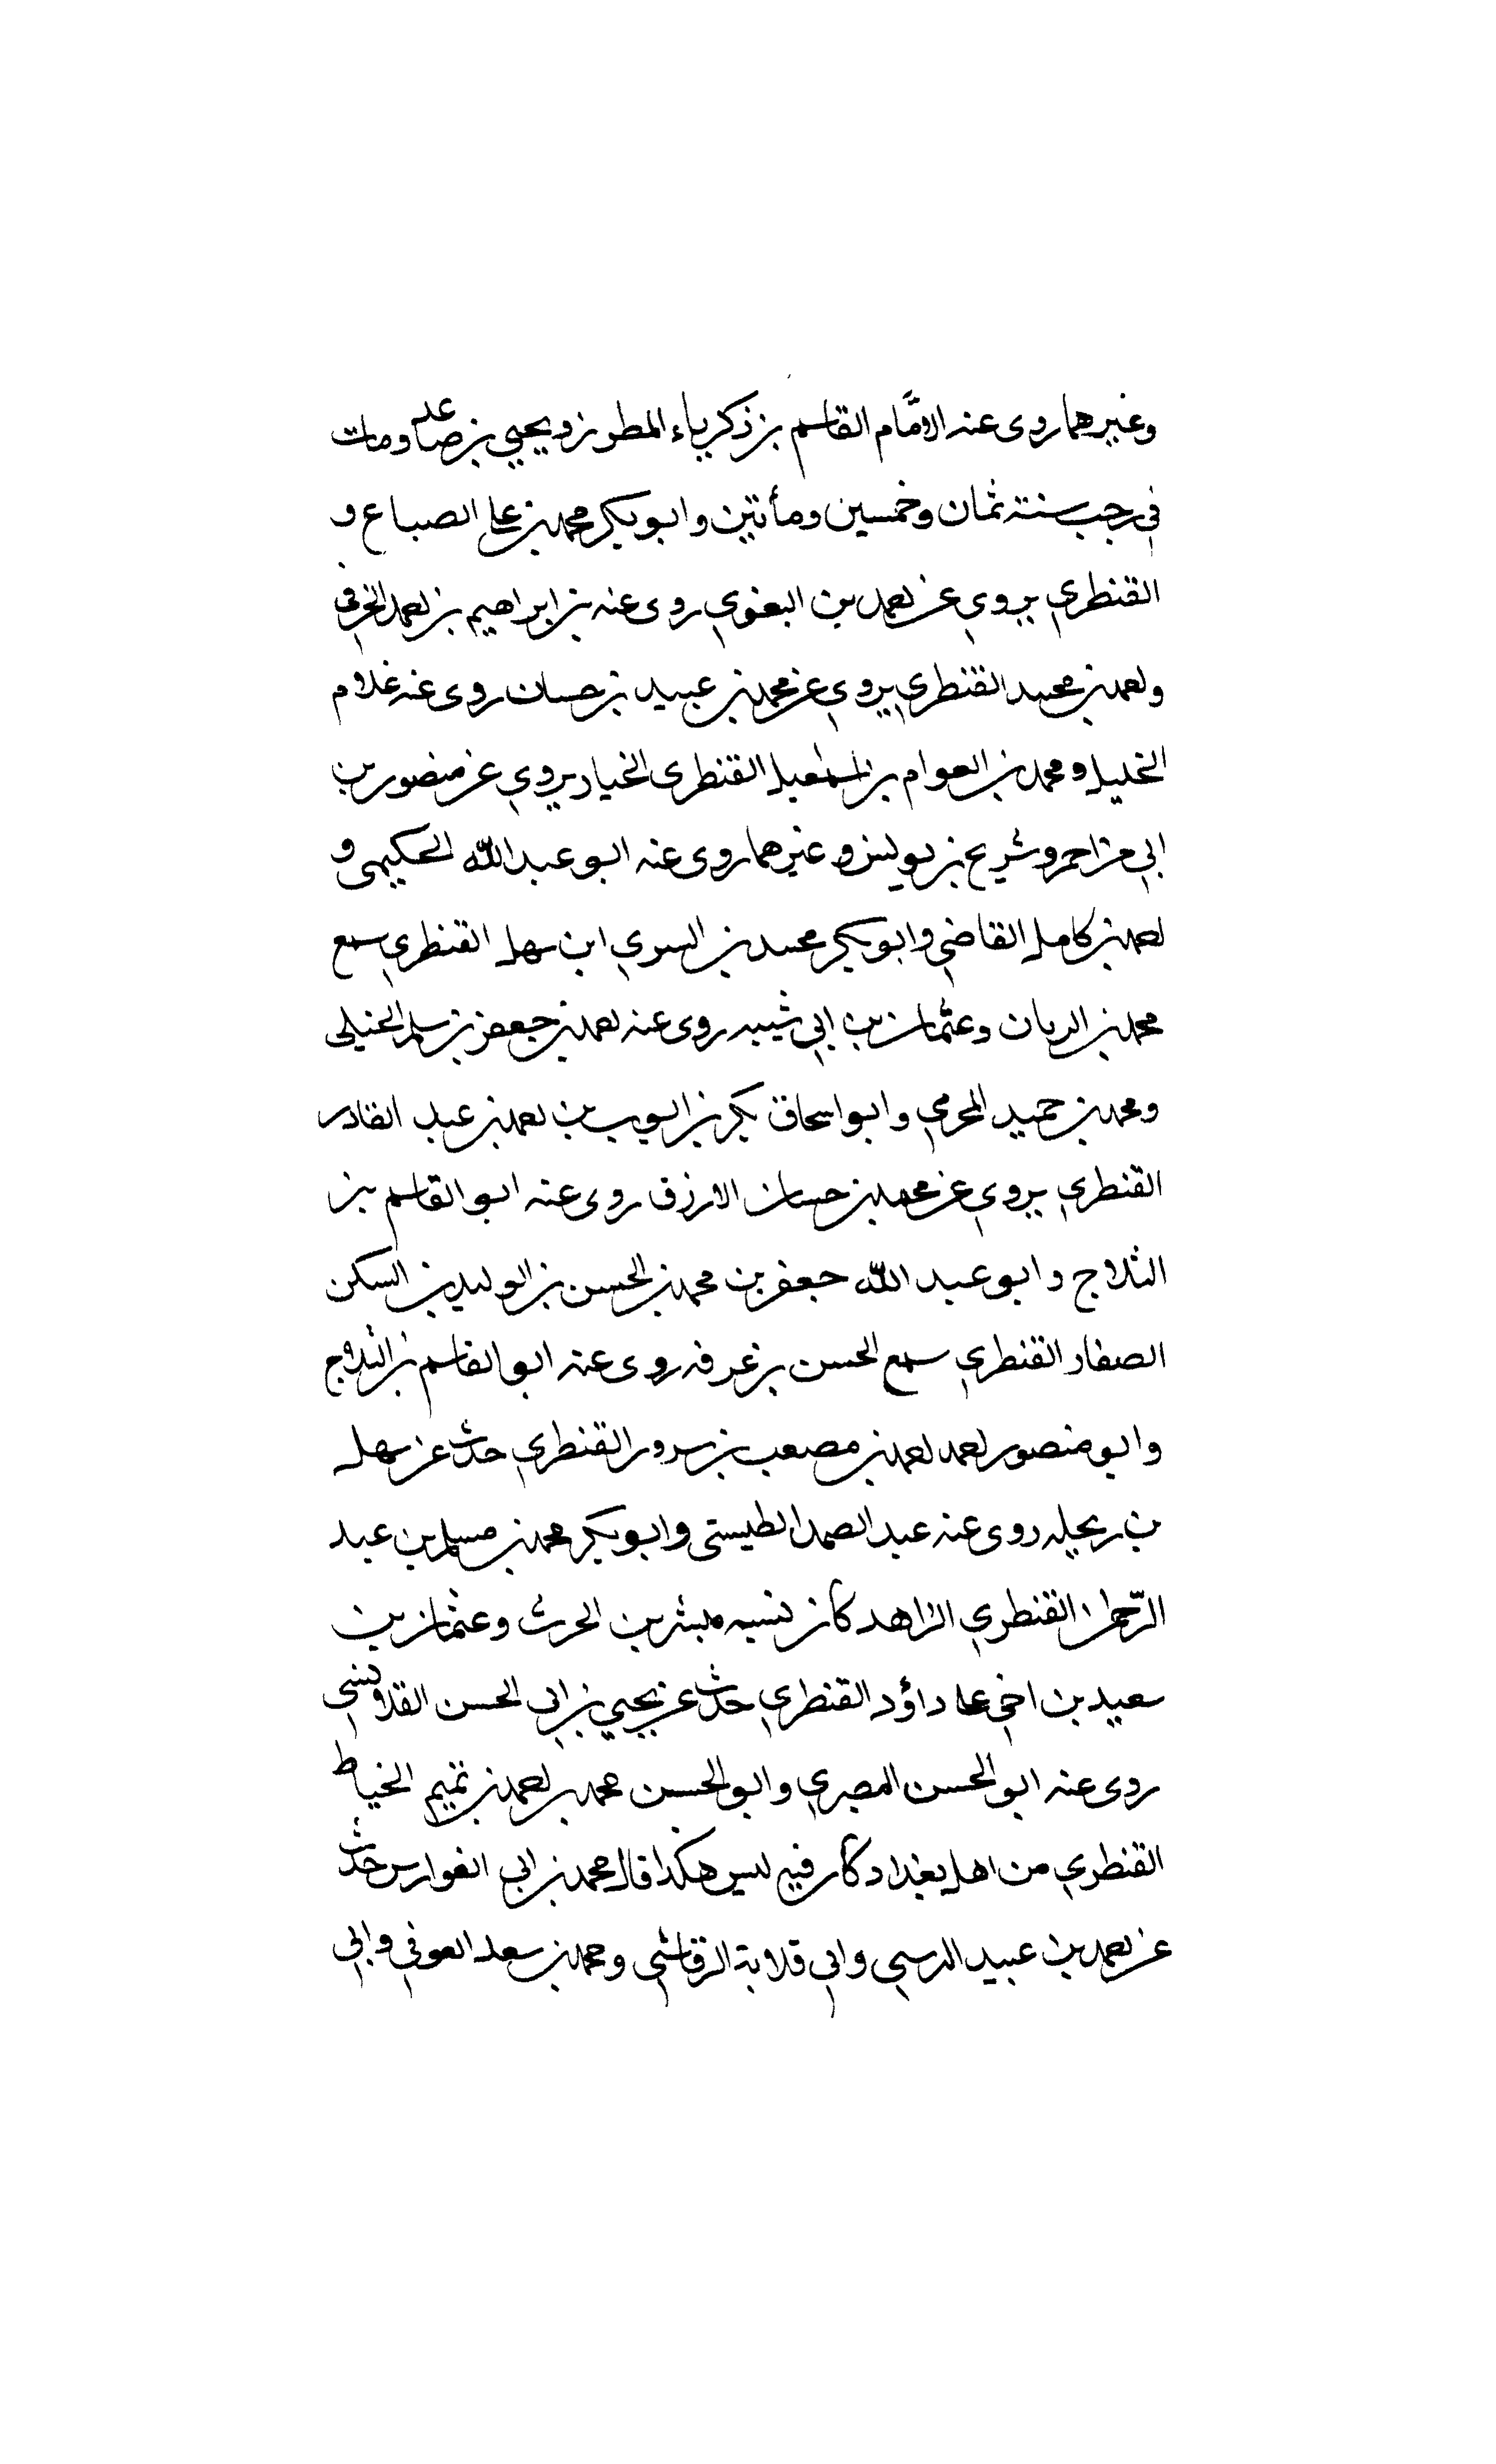 وغيرهما روى عنه الامَّام القاسم بن زكرياء المطرز ويحيى بن صاعد ومات
في رجب سنة ثمان وخمسين ومأتين وابو بكر محمد بن علي الصباع و
القنطري يروي عن احمد بن البغوي روى عنه بن ابراهيم بن احمد الخرقى
واحمد بن محمد القنطري يروي عن محمد بن عبيد بن حسان روى عنه غلام
الخليل ومحمد بن العوام بن اسمعيل القنطرى الخياد يروي عن منصور بن
ابي مزاحم وشريح بن يونس وغيرهما روى عنه ابو عبد الله الحكيمى و
احمد بن كامل القاضي وابو بكر محمد بن السري ابن سهل القنطري سمع
محمد بن الريان وعثمان بن ابي شيبه روى عنه احمد بن جعفر بن سلم الحنبلى
ومحمد بن حميد المخرمي وابو اسحاق بكر بن ايوب بن احمد بن عبد القادر
القنطري يروي عن محمد بن حسان الازرق روى عنه ابو القاسم بن
الثلاج وابو عبد الله جعفر بن محمد بن الحسن بن الوليد بن السكن
الصفار القنطري سمع الحسن بن عرفه روى عنه ابو القاسم بن الثلاج
وابو منصور احمد احمد بن مصعب بن سرور القنطري حدث عن سهل
بن زنجله روى عنه عبد الصمد الطيستى وابو بكر محمد بن مسلم بن عبد
الرّحمن القنطري الزاهد كان نسبه مبشر بن الحرث وعثمان بن
سعيد بن اخي على داؤد القنطري حدث عن يحيى بن ابي الحسن القلانسى
روى عنه ابو الحسن المصري وابو الحسن محمد بن احمد بن تميم الخياط
القنطري من اهل بغداد كان فيه ليس هكذا قال محمد بن ابي الفوارس حدث
عن احمد بن عبيد النرسي وابي قلابة الرقاشي ومحمد بن سعد العوفي وابي